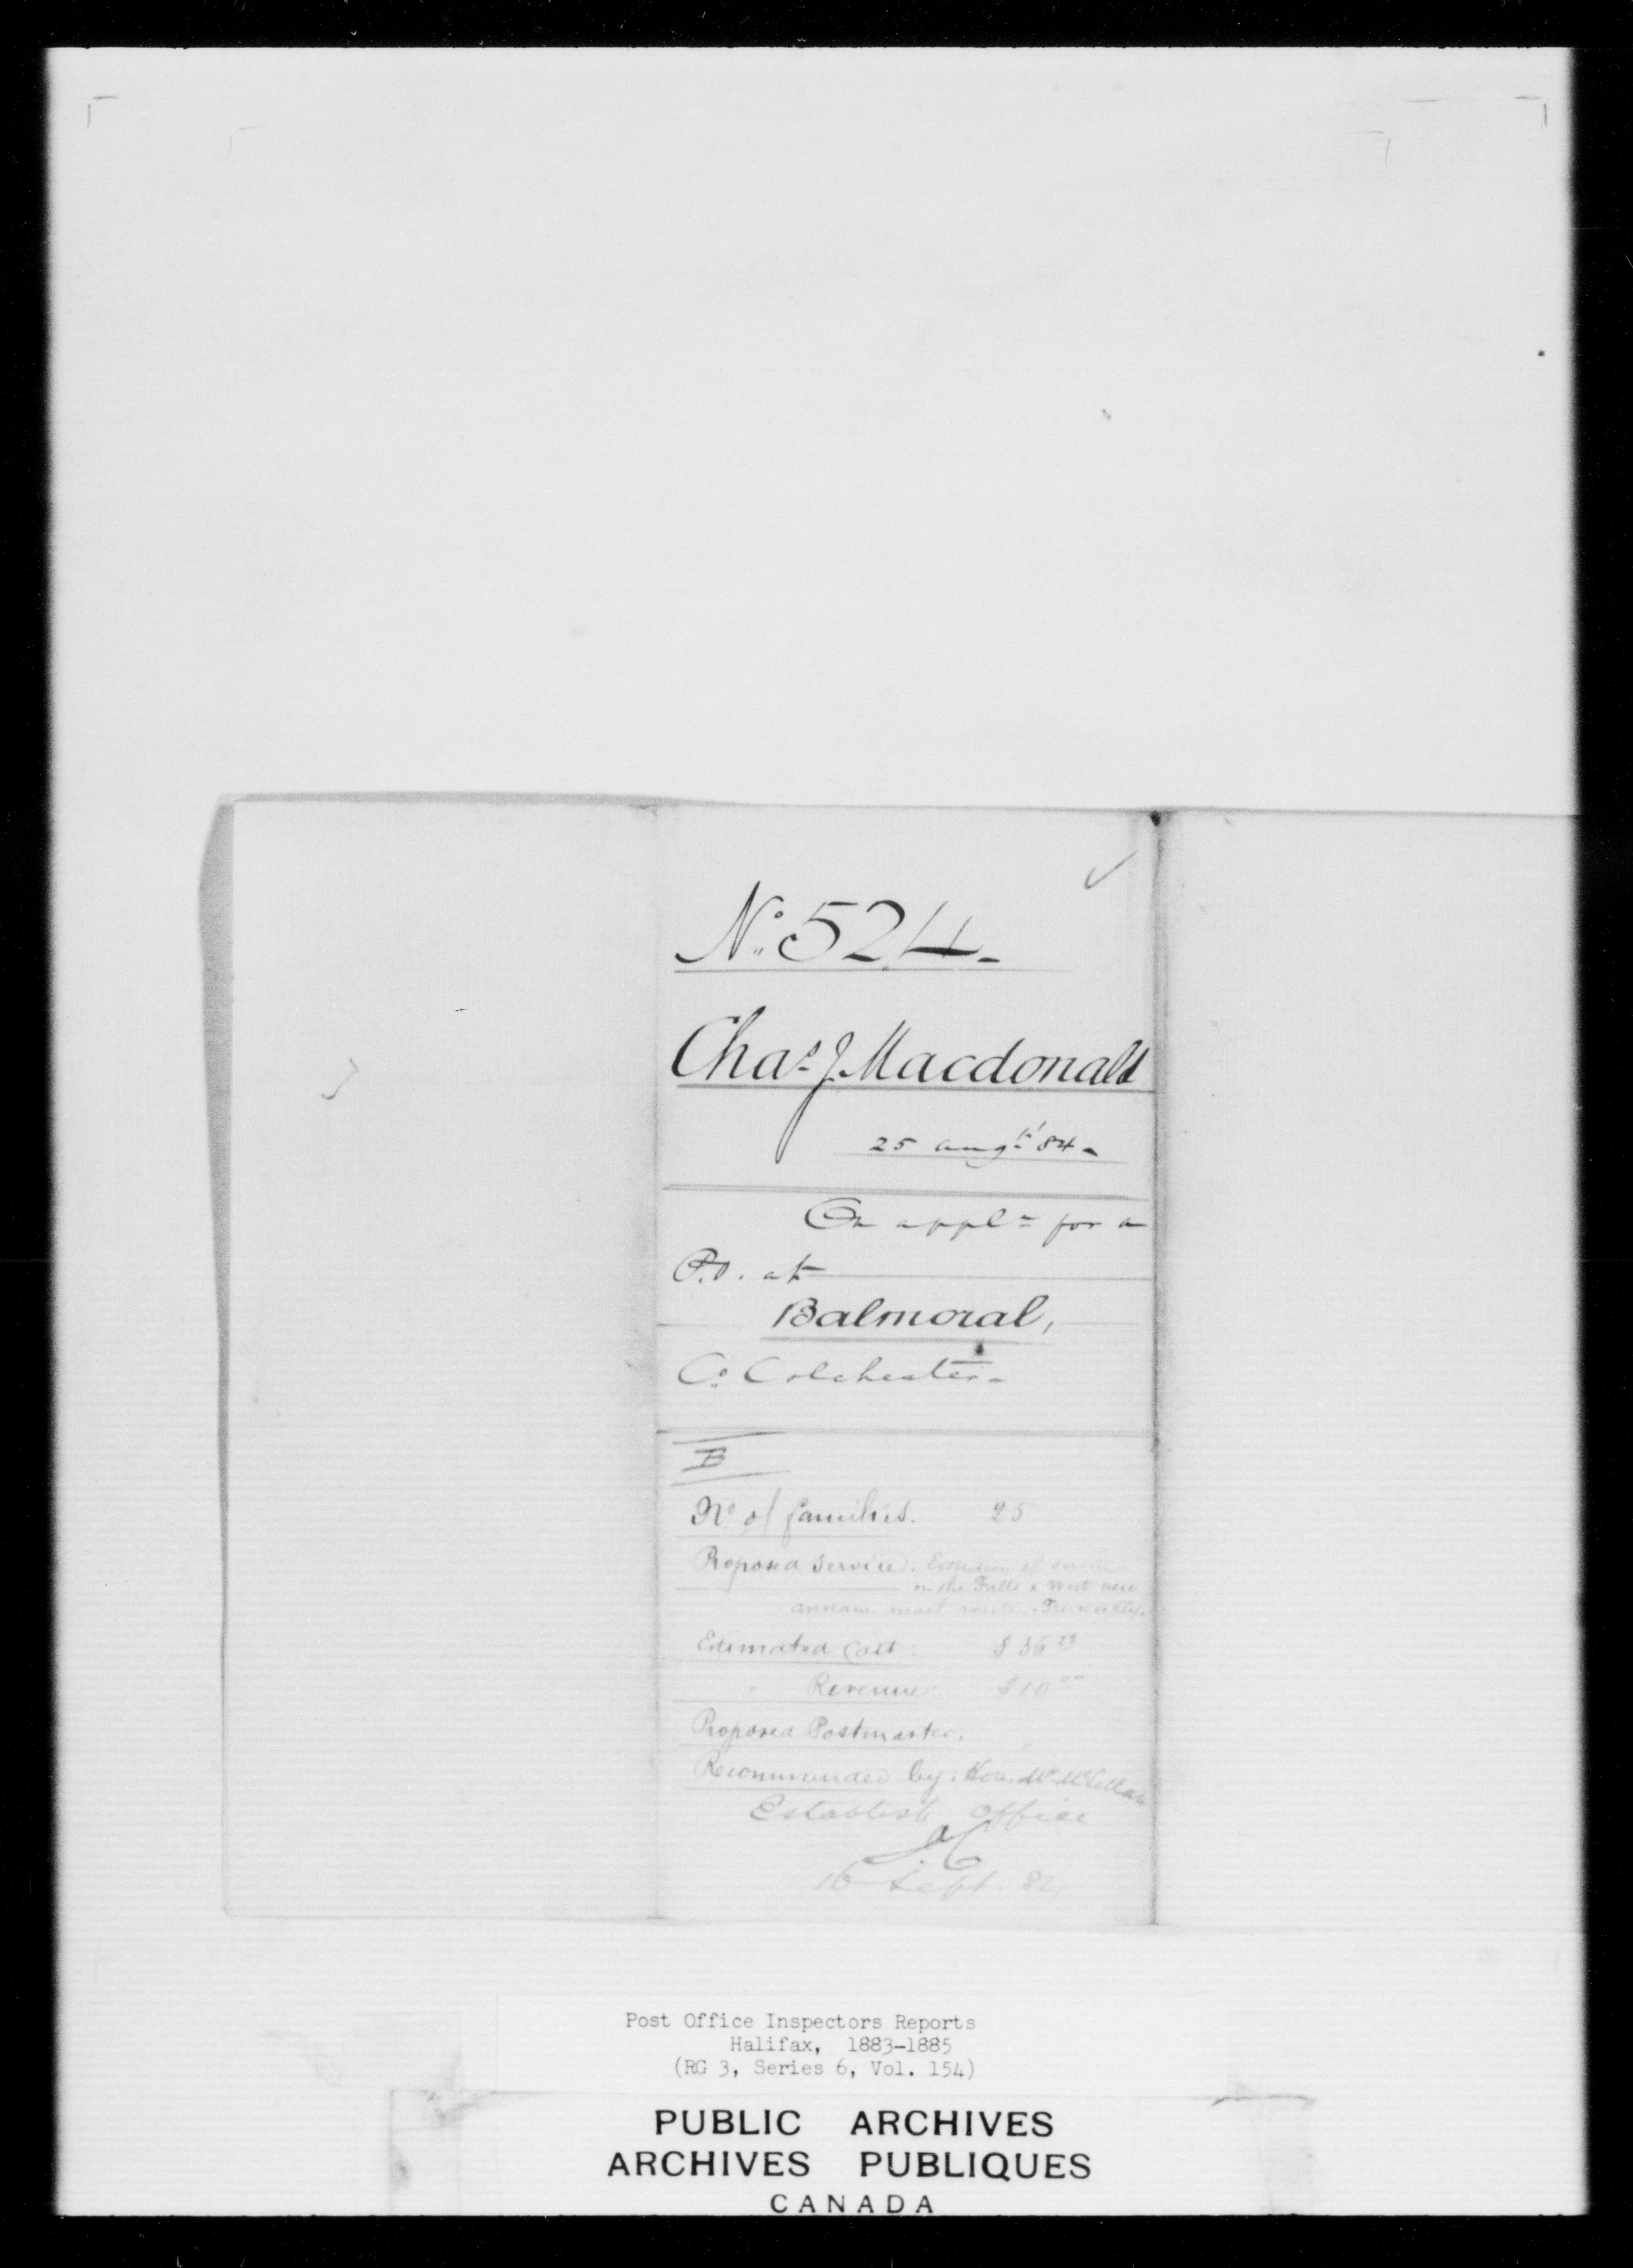 No. 524.
Chas. J. Macdonald
25 Augt. '84.
On appln for a
P.O. at
Balmoral,
Co. Colchester.
B
No of families. 25
Proposed Service. Extension of Service
on the Falls & West New
Annan mail route. Tri-weekly.
Estimated Cost: $36
" Revenue: $10 00
Proposed Postmaster.
Recommended by: Hon. Mr. McLellan
Establish office
16 Sept. 84
Post Office Inspectors Reports
Halifax, 1883-1885
(RG 3, Series 6, Vol. 154)
PUBLIC ARCHIVES
ARCHIVES PUBLIQUES
CANADA